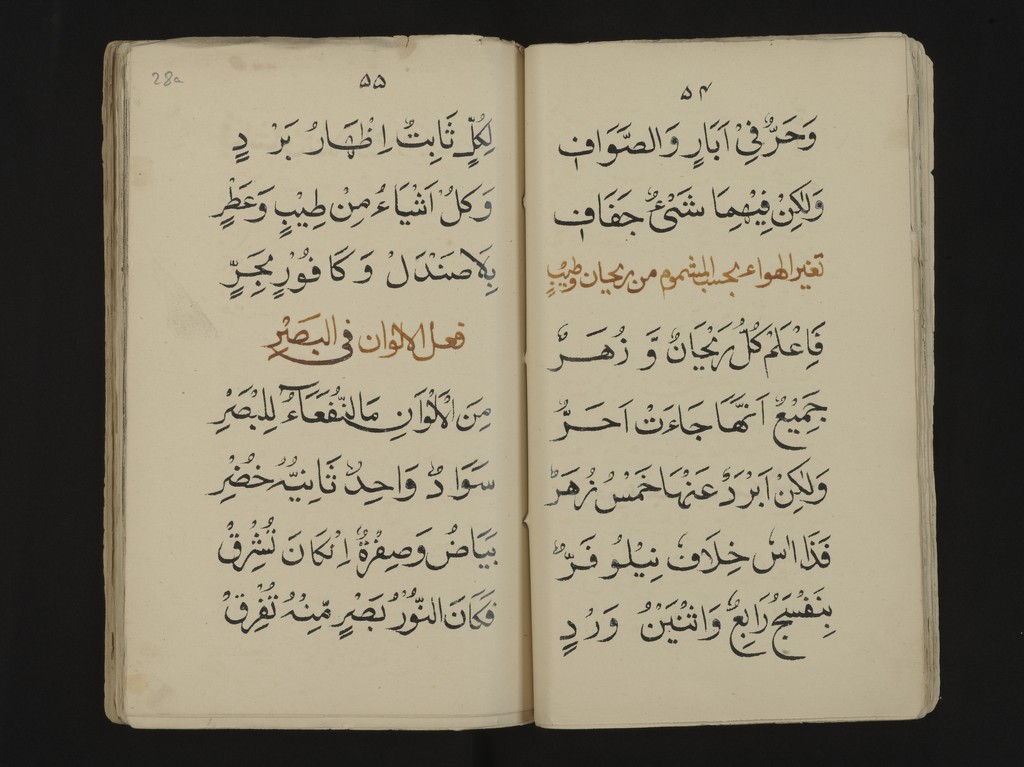 ۵۴
وَحَرٌّ فِيْ اَبَارٍ وَالصَّوَافِ
وَلٰكِنْ فِيْهِمَا شَئٌ جَفَافِ
تغير الهواء بحسب المشموم من ريحان وطيبٍ
فَاعْلَمْ كُلُّ رَيْحَانٌ وَّ زُهَرٌ
جَمِيْعٌ اَنَّهَا جَاءَتْ اَحَرٌّ
وَلٰكِنْ اَبْرَدْ عَنْهَا خَمْسُ زُهَرٌ
فَذَا اسٌ خِلَافٌ نِيْلُوفَرٌّ
بِنَفْسَجٌ رَابِعٌ وَاثْنَيْنْ وَرْدٍ
۵۵
28a
لِكُلٍّ ثَابِتٌ اِظْهَارُ بَرْدٍ
وَكُلُ اَشْيَاءُ مِنْ طِيْبٍ وَعَطْرٍ
بِلَا صَنْدَلْ وَكَافُوْرٍ بِحَرٍّ
فعل الالوان فى البَصَرِ
مِنَ الْاَلْوَانِ مَا النُّفَعَاءُ لِلْبَصْرِ
سَوَادٌ وَاحِدٌ ثَانِيَّهُ خُضْرِ
بَيَاضُ وَصِفْرَةٌ اِنْكَانَ تُشْرِقْ
فَكَانَ النُّوْرُ بَصْرٍ مِّنْهُ تُفْرِقْ